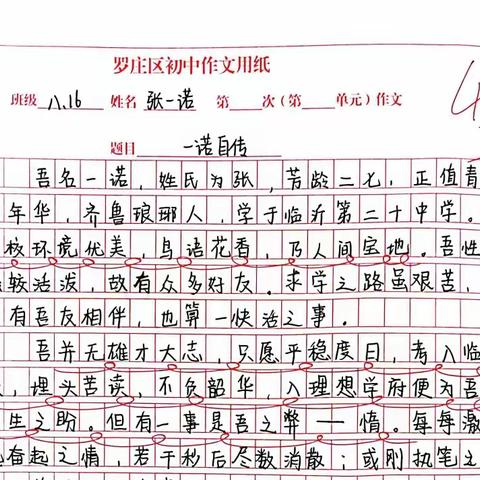 罗庄区初中作文用纸
班级 八.16 姓名 张一诺 第 次(第 单元)作文
题目 一诺自传
吾名一诺,姓氏为张,芳龄二七,正值青
年华,齐鲁琅琊人,学于临沂第二十中学。
校环境优美,鸟语花香,乃人间宝地。吾性
较活泼,故有众多好友。求学之路虽艰苦,
有吾友相伴,也算一快活之事.
吾并无雄才大志,只愿平稳度日,考入临
,埋头苦读,不负韶华,入理想学府便为吾
生之盼。但有一事是吾之弊——惰。每每激
奋起之情,若干秒后尽数消散;或刚执笔之